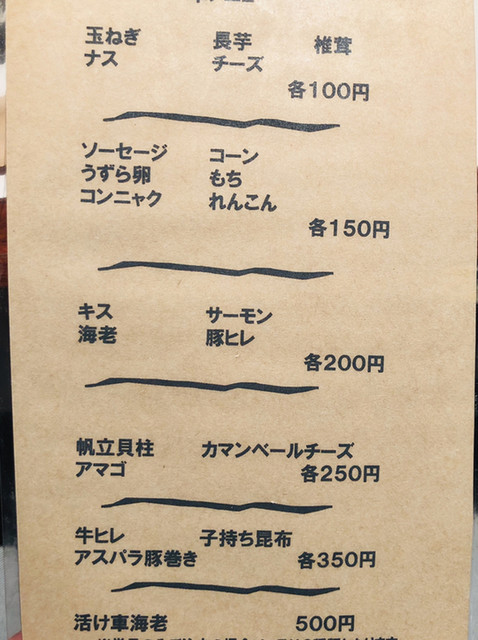 玉ねぎ 長芋 椎茸
ナス チーズ
各100円
ソーセージ コーン
うずら卵 もち
コンニャク れんこん
各150円
キス サーモン
海老 豚ヒレ
各200円
帆立貝柱 カマンベールチーズ
アマゴ 各250円
牛ヒレ 子持ち昆布
アスパラ豚巻き 各350円
活け車海老 500円